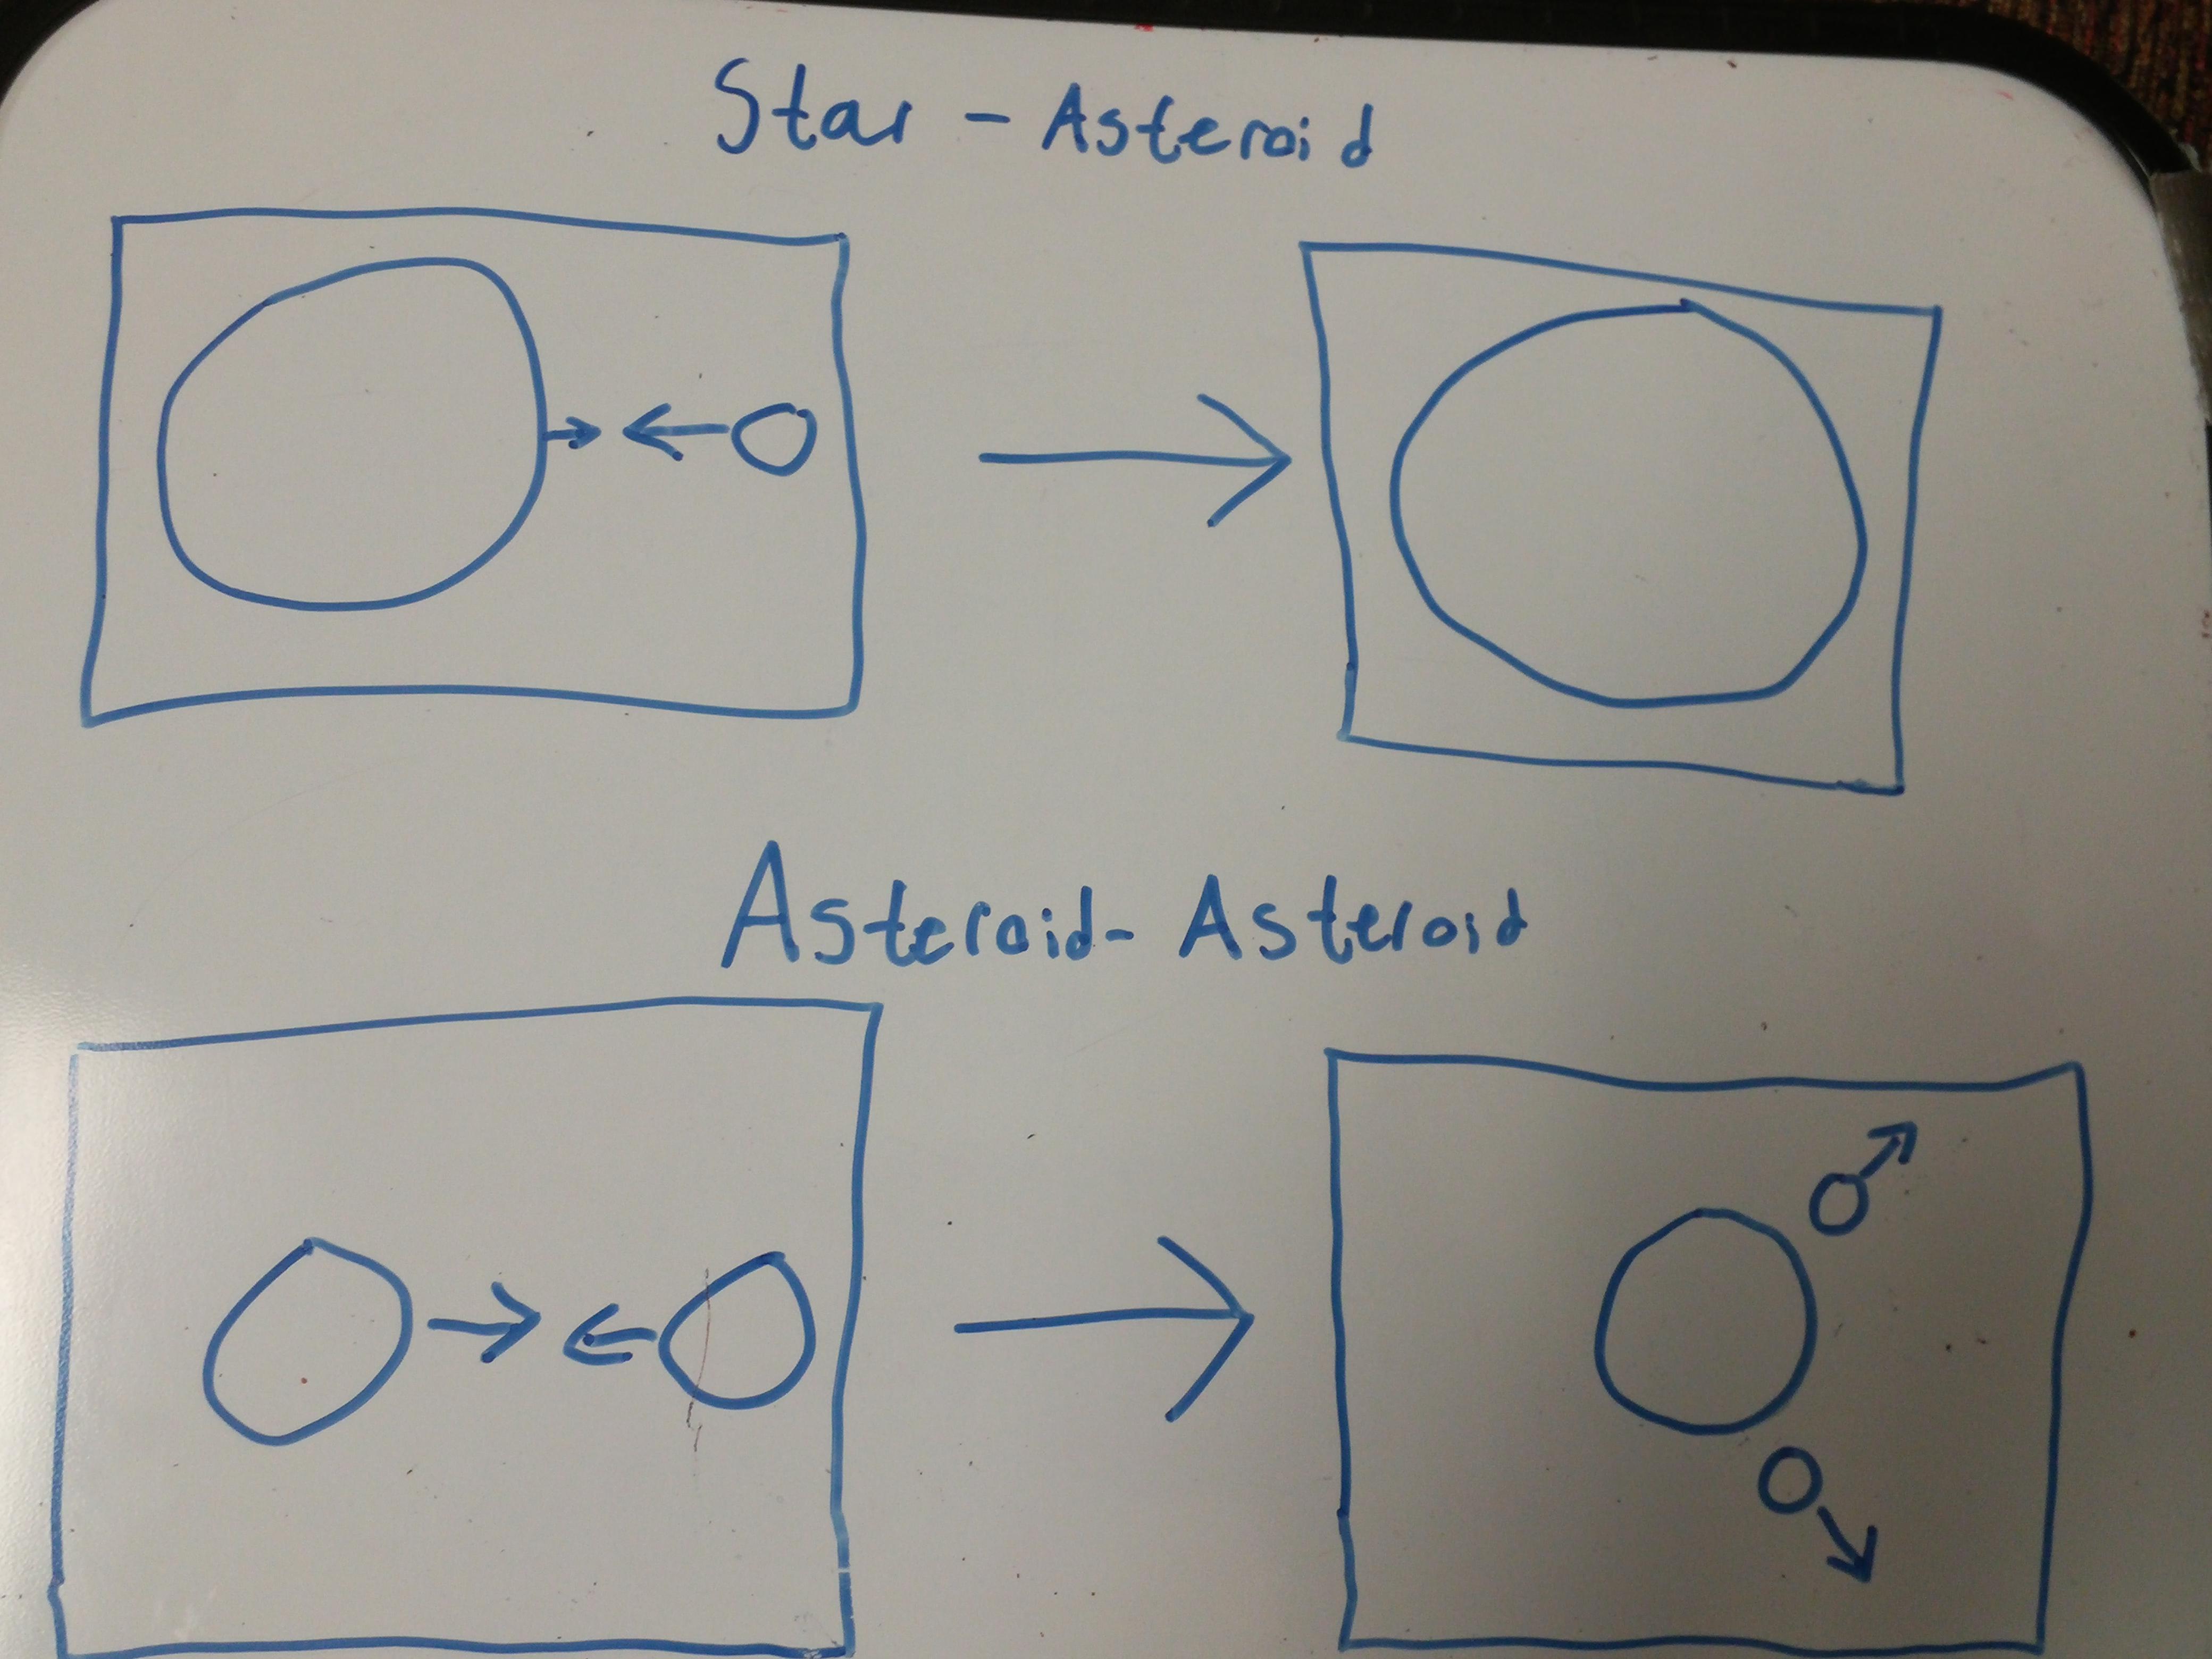 Star - Asteroid
Asteroid - Asteroid